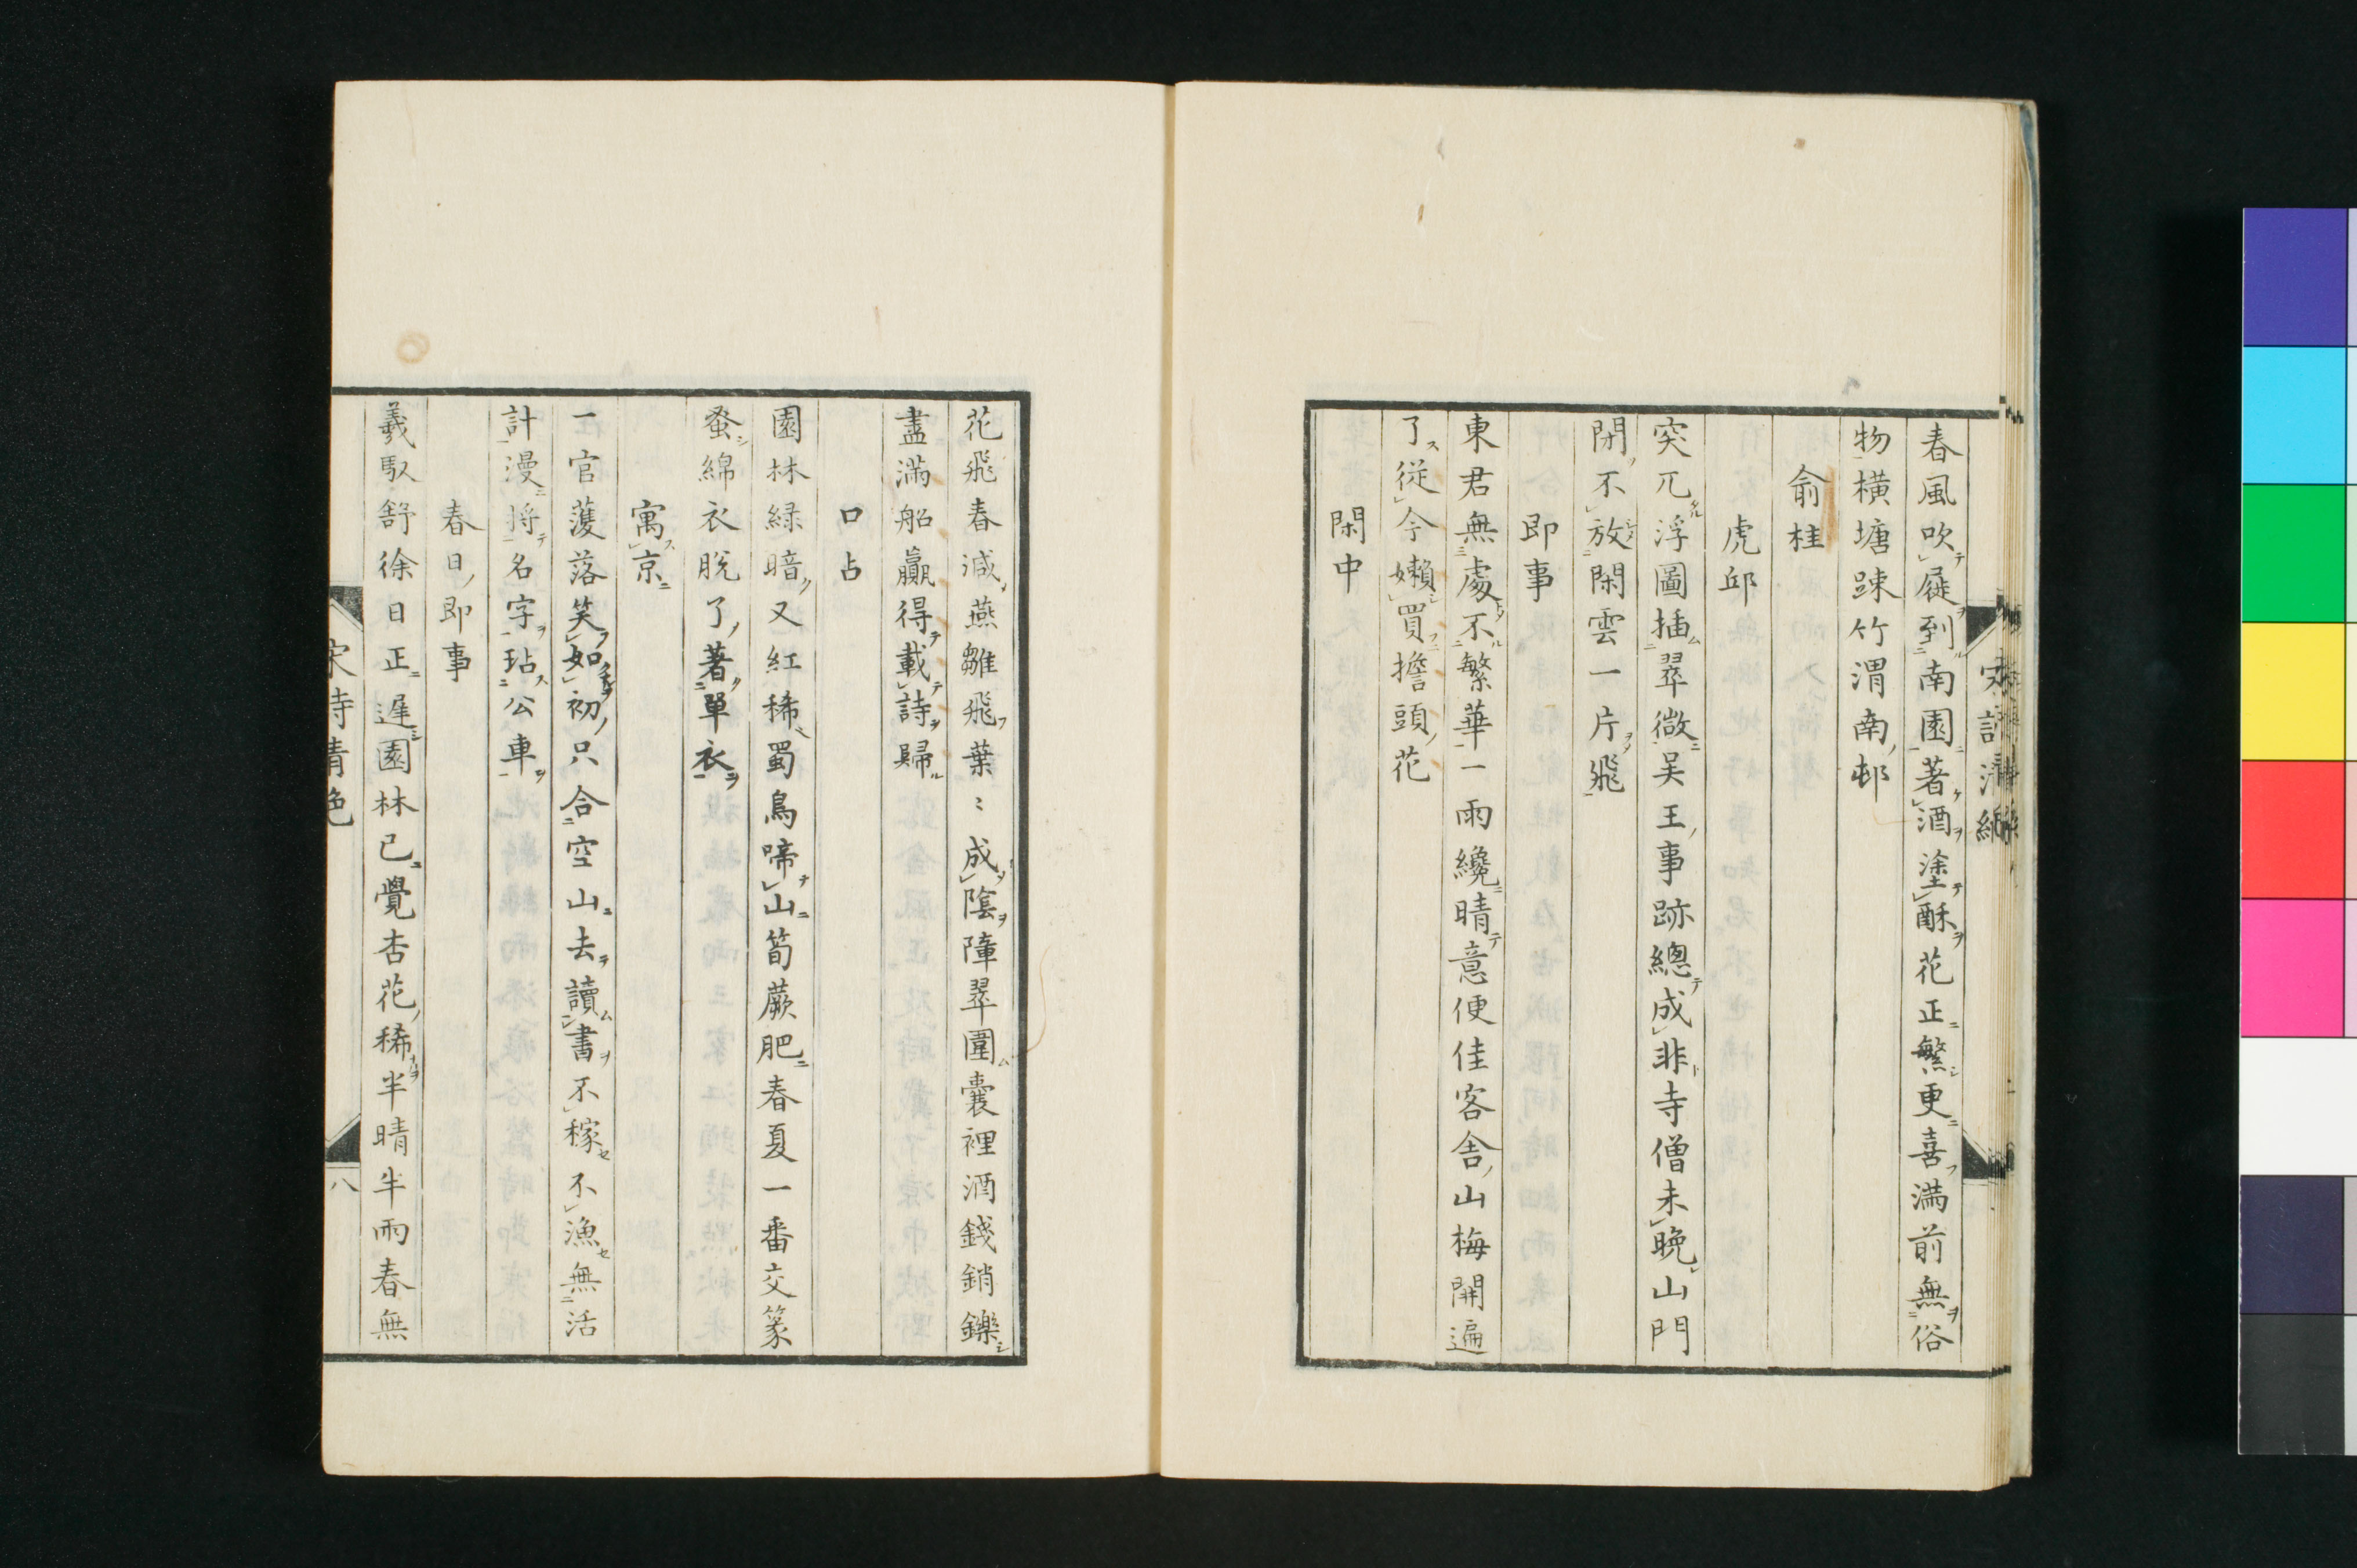 春風吹屣到南園著酒塗酥花正繁更喜滿前無俗
物橫塘踈竹渭南邨
俞桂
虎邱
突兀浮圖插翠微吴王事跡總成非寺僧未晚山門
閉不放閑雲一片飛
即事
東君無處不繁華一雨纔晴意便佳客舍山梅開遍
了從今嬾買擔頭花
閑中
花飛春減燕雛飛葉〻成陰障翠圍囊裡酒錢銷鑠
盡滿船贏得載詩歸
口占
園林綠暗又紅稀蜀鳥啼山筍蕨肥春夏一番交篆
蚕綿衣脫了著單衣
寓京
一官蒦落笑如初只合空山去讀書不稼不漁無活
計漫将名字玷公車
春日即事
羲馭舒徐日正遲園林已覺杏花稀半晴半雨春無
宋詩清絶
八